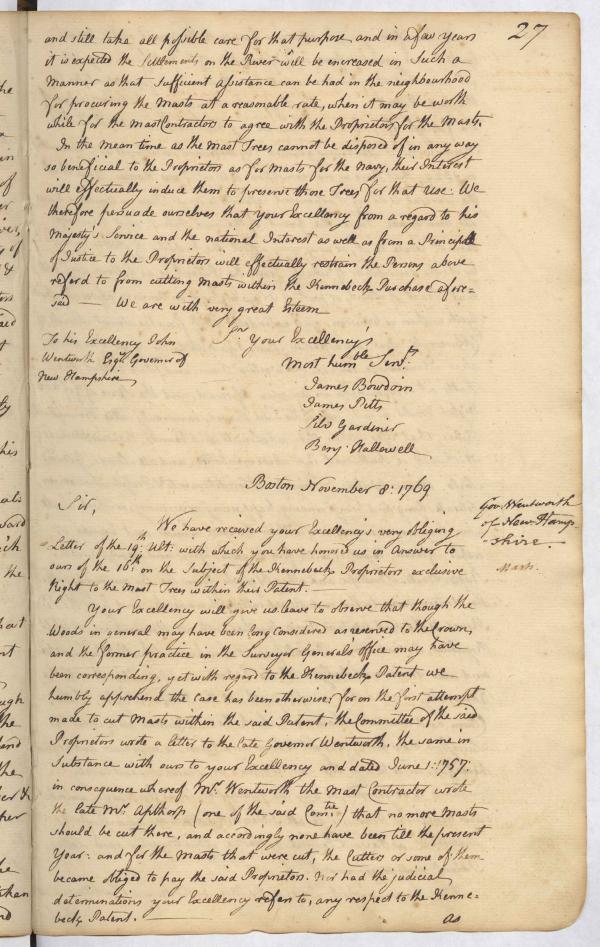 27
and still take all possible care for that purpose and in a few years
it is expected the Settlements on the River will be encreased in Such a
Manner as that Sufficient Assistance can be had in the neighbourhood
for procuring the Masts at a reasonable rate, when it may be worth
while for the mast Contractors to agree with the Proprietors for the Masts.
In the mean time as the Mast Trees cannot be disposed of in any way
so beneficial to the Proprietors as for Masts for the Navy, their Interest
will effectually induce them to preserve those Trees for that Use: We
therefore persuade ourselves that your Excellency from a regard to his
Majesty's Service and the national Interest as well as from a Principle
of Justice to the Proprietors will effectually restrain the Persons above
referd to from cutting Masts within the Kennebeck Purchase afore=
said — We are with very great Esteem
Sr. your Excellency's
To his Excellency John
Wentworth Esqr. Governor of
New Hampshire
Most humble Servts.
James Bowdoin
James Pitts
Silv Gardiner
Benj. Hallowell
Boston November 8: 1769
Gov. Wentworth
of New Hamp-
-shire.
Masts.
Sir,
We have received your Excellency's very obliging
Letter of the 19th Ult: with which you have honored us in Answer to
ours of the 16th on the Subject of the Kennebeck Proprietors exclusive
Right to the Mast Trees within their Patent. —
Your Excellency will give us leave to observe that though the
Woods in general may have been long considered as reserved to the Crown,
and the former practice in the Surveyor Generals office may have
been corresponding, yet with regard to the Kennebeck Patent we
humbly apprehend the case has been otherwise: for on the first attempt
made to cut Masts within the said Patent, the Committee of the said
Proprietors wrote a Letter to the late Governor Wentworth, the same in
Substance with ours to your Excellency and dated June 1: 1757.
in consequence whereof Mr. Wentworth the Mast Contractor wrote
the late Mr. Apthorp (one of the said Comtee) that no more Masts
should be cut there, and accordingly none have been till the present
Year: and for the Masts that were cut, the Cutters or some of them
became obliged to pay the said Proprietors. Nor had the judicial
determinations your Excellency refers to, any respect to the Kenne=
beck Patent. —
as